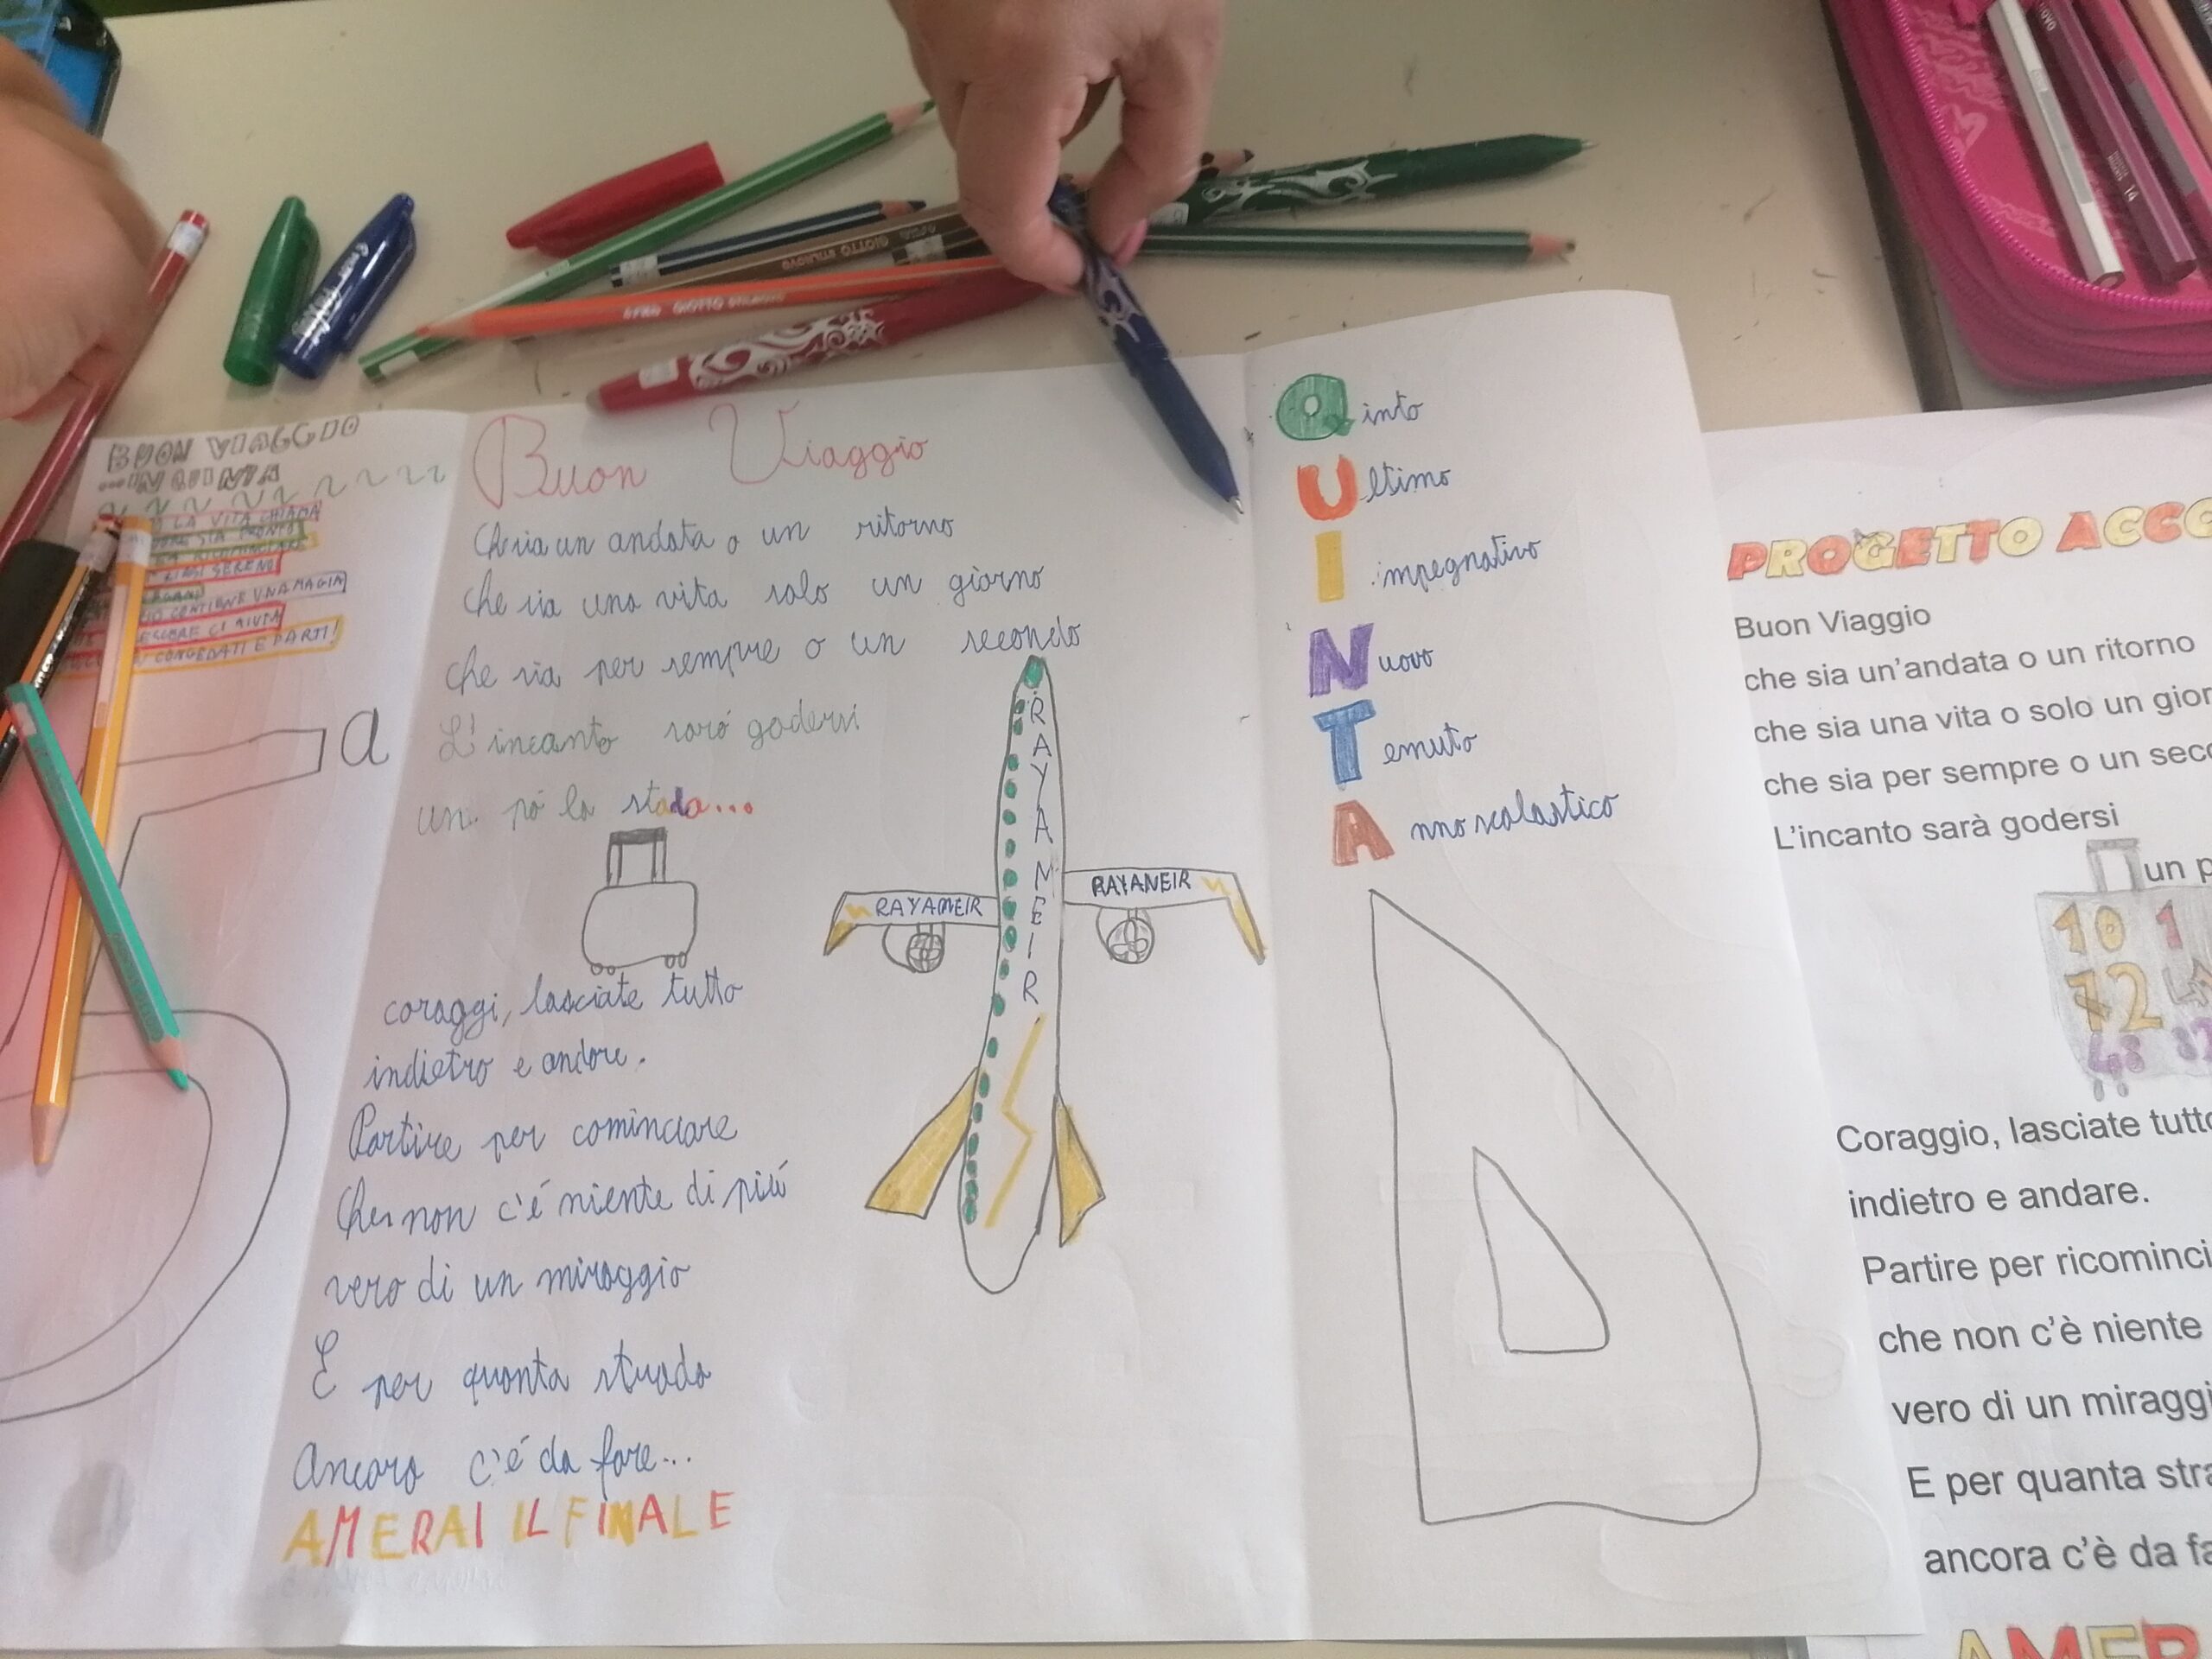 BUON VIAGGIO
...IN QUINTA
LA VITA CHIAMA
SIA PRONTO
SERENO
CONTIENE UNA MAGIA
CI AIUTA
CONGEDATI E PARTI!
a
Buon Viaggio
Che sia un andata o un ritorno
che sia una vita solo un giorno
che sia per sempre o un secondo
L'incanto sará godersi
un pó la stada...
coraggi, lasciate tutto
indietro e andare.
Partire per cominciare
Che non c'é niente di piú
vero di un miraggio
E per quanta stuada
Ancora c'é da fare...
AMERAI IL FINALE
RAYAMEIR
RAYAMEIR
RAYANEIR
Qinto
Ultimo
Impegnativo
Nuovo
Temuto
Anno scolastico
PROGETTO ACCO
Buon Viaggio
che sia un'andata o un ritorno
che sia una vita o solo un gior
che sia per sempre o un seco
L'incanto sarà godersi
un p
10 1
12
48
Coraggio, lasciate tutto
indietro e andare.
Partire per ricominci
che non c'è niente
vero di un miraggi
E per quanta stra
ancora c'è da fa
AMER
GIOTTO STILNOVO
GIOTTO STILNOVO
14